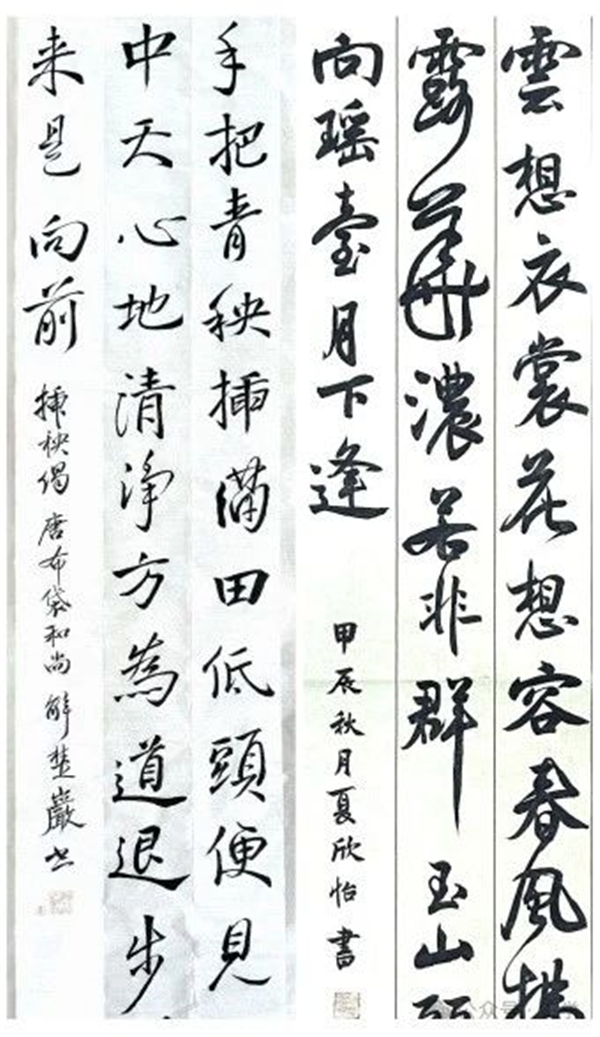 雲想衣裳花想容春風拂
露華濃若非群玉山
向瑶臺月下逢
甲辰秋月夏欣怡書
手把青秧插滿田低頭便見
中天心地清淨方為道退步
来是向前
插秧偈 唐布袋和尚 解楚巖书
公众号